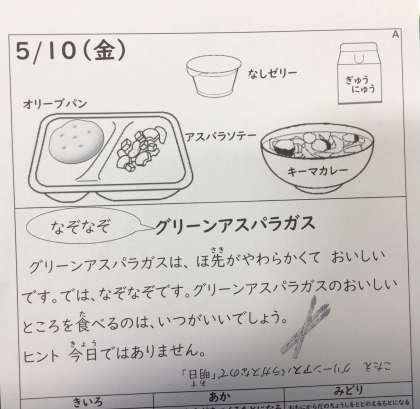 A
5/10(金)
なしゼリー
ぎゅう
にゅう
オリーブパン
アスパラソテー
キーマカレー
なぞなぞ
グリーンアスパラガス
グリーンアスパラガスは、ほ先がやわらかくて おいしい
さき
です。では、なぞなぞです。グリーンアスパラガスのおいしい
ところを食べるのは、いつがいいでしょう。
た
ヒント 今日ではありません。
きょう
こたえ グリーンアスパラガスなので「明日」
あす
きいろ
あか
みどり